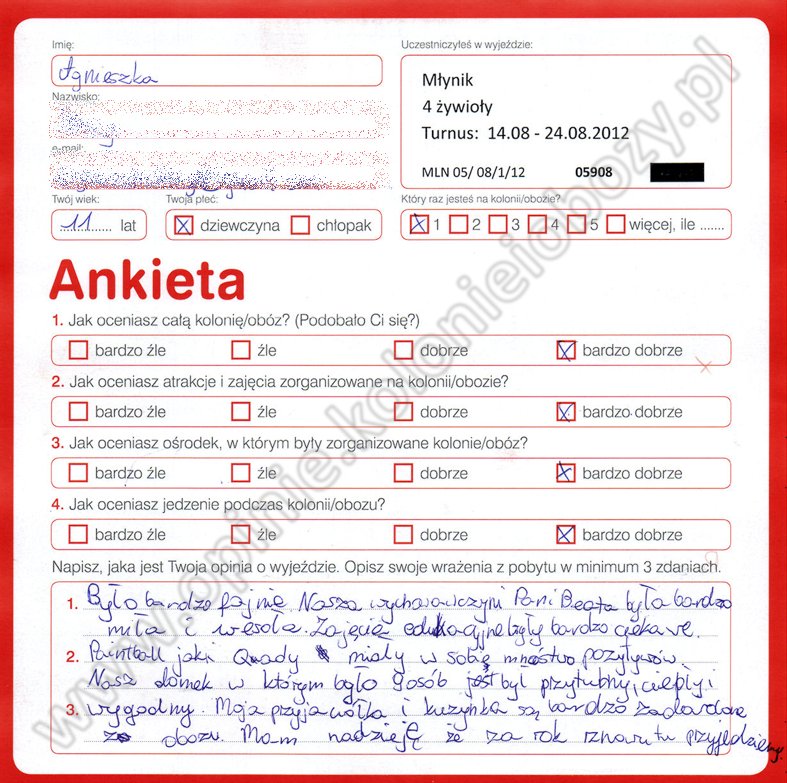 Imię:
Agnieszka
Uczestniczyłeś w wyjeździe:
Młynik
4 żywioły
Turnus: 14.08 - 24.08.2012
MLN 05/ 08/1/12 05908
Nazwisko:
e-mail:
Twój wiek:
11 lat
Twoja płeć:
dziewczyna chłopak
Który raz jesteś na kolonii/obozie?
1 2 3 4 5 więcej, ile .......
Ankieta
1. Jak oceniasz całą kolonię/obóz? (Podobało Ci się?)
bardzo źle źle dobrze bardzo dobrze
2. Jak oceniasz atrakcje i zajęcia zorganizowane na kolonii/obozie?
bardzo źle źle dobrze bardzo dobrze
3. Jak oceniasz ośrodek, w którym były zorganizowane kolonie/obóz?
bardzo źle źle dobrze bardzo dobrze
4. Jak oceniasz jedzenie podczas kolonii/obozu?
bardzo źle źle dobrze bardzo dobrze
Napisz, jaka jest Twoja opinia o wyjeździe. Opisz swoje wrażenia z pobytu w minimum 3 zdaniach.
1. Było bardzo fajnie. Nasza wychowawczyni Pani Beata była bardzo
miła i wesoła. Zajęcia edukacyjne były bardzo ciekawe.
2. Paintball jaki Quady miały w sobie mnóstwo pozytywów.
Nasz domek w którym było 9 osób był przytulny, ciepły i
3. wygodny. Moja przyjaciółka i kuzynka są bardzo zadowolone
z obozu. Mam nadzieję że za rok znowu tu przyjedziemy.
www.opinie.kolonieiobozy.pl